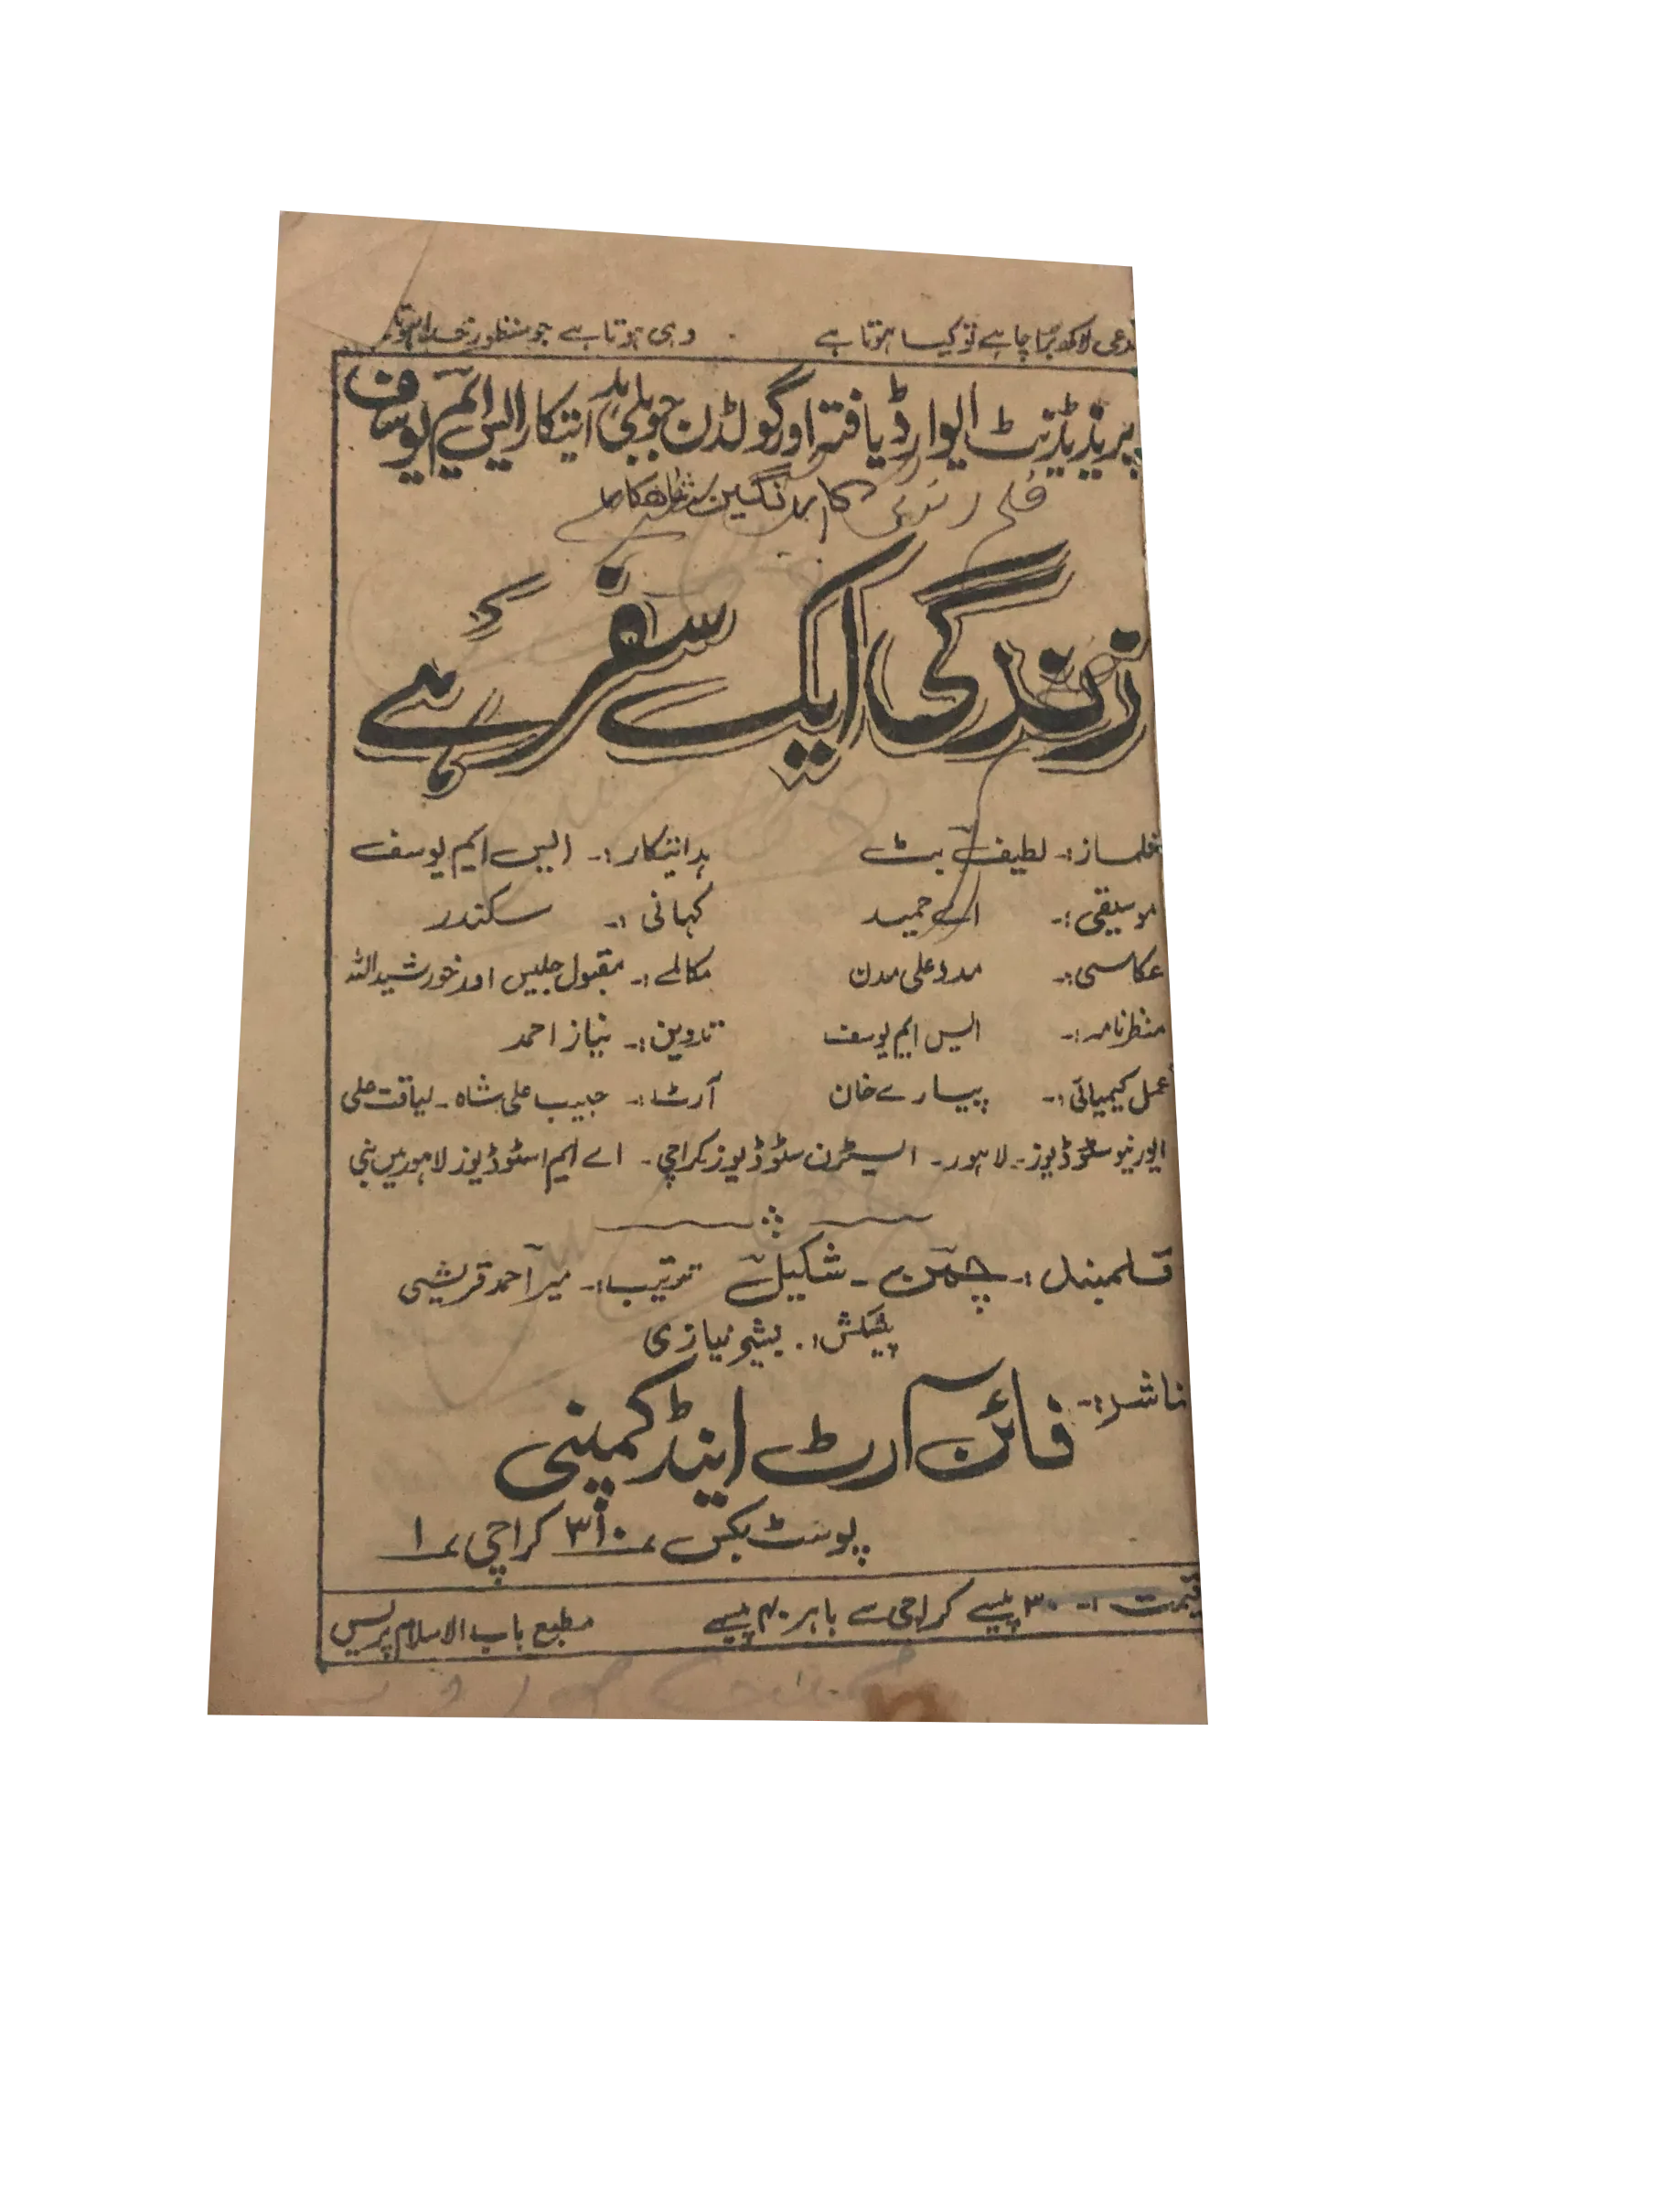 مدعی لاکھ برا چاہے تو کیا ہوتا ہے وہی ہوتا ہے جو منظور خدا ہوتا
پریذیڈنٹ ایوارڈ یافتہ اور گولڈن جوبلی ہدایتکار ایس ایم یوسف
کا رنگین شاھکار
زندگی ایک سفر ہے
فلمساز:۔ لطیف بٹ ہدایتکار:۔ ایس ایم یوسف
موسیقی:۔ اے حمید کہانی:۔ سکندر
عکاسی:۔ مدد علی مدن مکالمے:۔ مقبول جلیس اور خورشید اللہ
منظرنامہ:۔ ایس ایم یوسف تدوین:۔ نیاز احمد
عمل کیمیائی:۔ پیارے خان آرٹ:۔ حبیب علی شاہ۔ لیاقت علی
ایورنیو سٹوڈیوز۔ لاہور۔ ایسٹرن سٹوڈیوز کراچی۔ اے ایم اسٹوڈیوز لاہور میں بنی
قلمبند:۔ چمن۔ شکیل ترتیب:۔ میر احمد قریشی
پیشکش:۔ بشیر نیازی
ناشر:۔
فائن آرٹ اینڈ کمپنی
پوسٹ بکس ؍۳۱۰ کراچی ؍۱
قیمت:۔ ۳۰ پیسے کراچی سے باہر ۴۰ پیسے مطبع باب الاسلام پریس